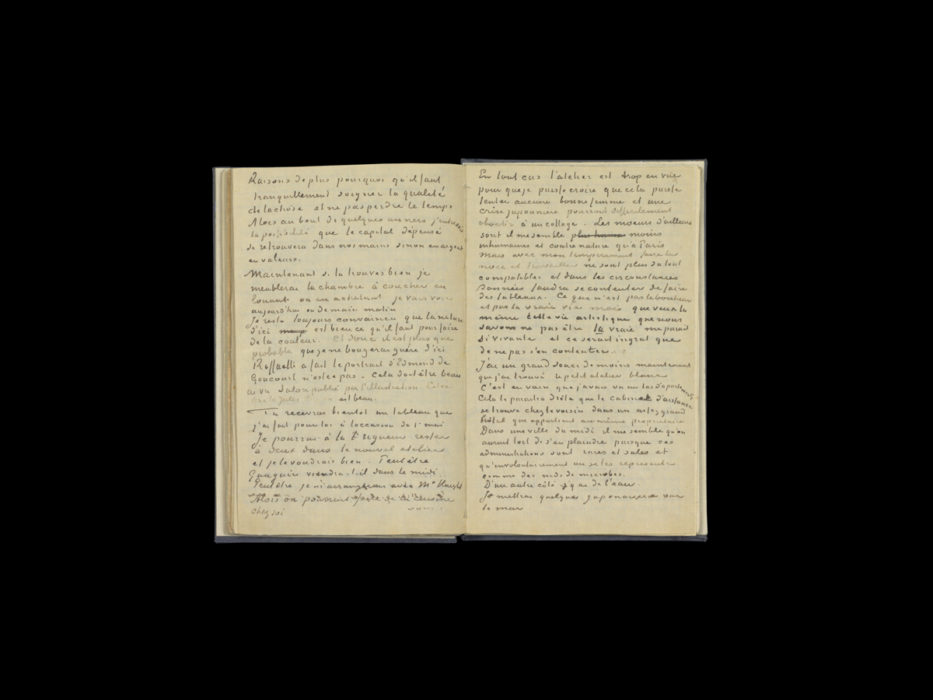 Raisons de plus pourquoi qu'il faut
tranquillement soigner la qualité
de la chose et ne pas perdre le temps
Alors au bout de quelques années j'entrevois
la possibilité que le capital dépensé
se retrouvera dans nos mains sinon en argent
en valeurs.
Maintenant si tu trouves bien je
meublerai la chambre à coucher en
louant ou en achetant je vais voir
aujourd'hui ou demain matin
Je reste toujours convaincu que la nature
d'ici est bien ce qu'il faut pour faire
de la couleur. Et donc il est plus que
probable que je ne bougerai guère d'ici
Raffaelli a fait le portrait d'Edmond de
Goncourt n'est ce pas. Cela doit être beau
ai vu Salon publié par l'illustration.
est beau.
Tu recevras bientôt un tableau que
j'ai fait pour toi à l'occasion de 1 mai
Je pourrais à la rigueur rester
à deux dans le nouvel atelier
et je le voudrais bien. Peutêtre
Gauguin viendra-t-il dans le midi.
Peutêtre je m'arrangerai avec Mc Knight
Alors on pourrait faire de la cuisine
chez soi
En tout cas l'atelier est trop en vue
pour que je puisse croire que cela puisse
tenter aucune bonne femme et une
crise juponnière pourrait difficilement
aboutir à un collage. Les moeurs d'ailleurs
sont il me semble moins
inhumaines et contre nature qu'à Paris
Mais avec mon temperament faire la
noce et travailler ne sont plus du tout
compatibles et dans les circonstances
données faudra se contenter de faire
des tableaux. Ce que n'est pas le bonheur
et pas la vraie vie mais que veux tu
même cette vie artistique que nous
savons ne pas être la vraie me parait
si vivante et ce serait ingrat que
de ne pas s'en contenter.
J'ai un grand souci de moins maintenant
que j'ai trouvé le petit atelier blanc
C'est en vain que j'avais vu un tas d'apartements
Cela te paraitra drôle que le cabinet d'aisance
se trouve chez le voisin dans un assez grand
hôtel qui appartient au même propriétaire
Dans une ville du midi il me semble qu'on
aurait tort de s'en plaindre puisque ces
administrations sont rares et sales et
qu'involontairement on se les représente
comme des nids de microbes.
D'un autre côté j'y ai de l'eau
Je mettrai quelques japonaiseries sur
le mur